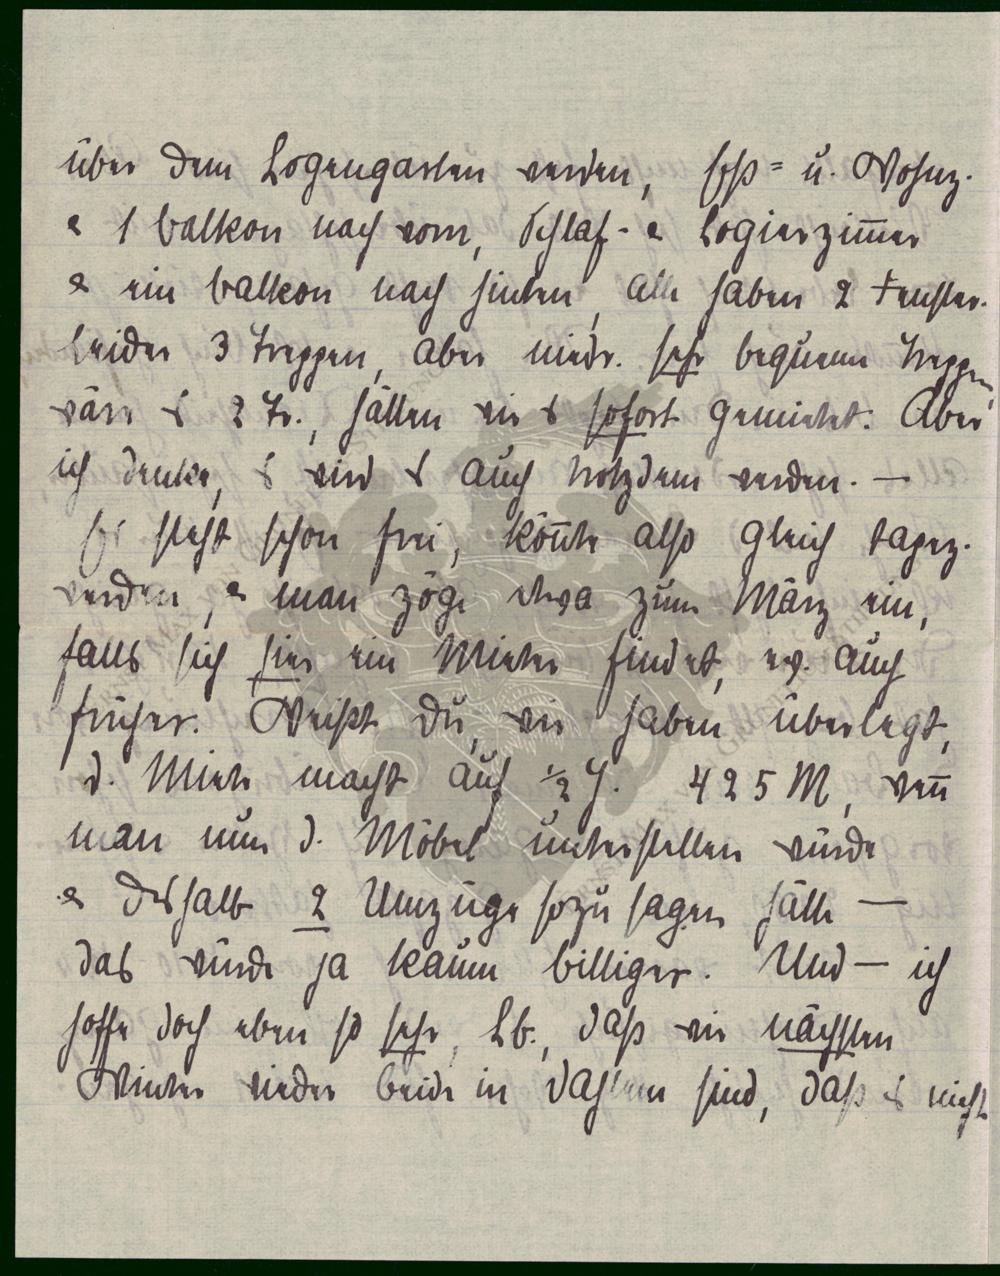 über dem Logengarten werden, Eß= u. Wohnz.
& 1 balkon nach vorn, Schlaf- & Logierzim̅er
& ein balkon nach hinten, alle haben 2 Fenster.
Leider 3 Treppen, aber niedr. sehr bequeme Treppen,
wärs 2 Tr., hätten wir es sofort gemietet. Aber
ich denke, es wird auch trotzdem werden. —
Es steht schon frei, kön̅te also gleich tapez.
werden, & man zöge etwa zum März ein,
falls sich hier ein Mieter findet, ev. auch
früher. Weißt du, wir haben überlegt,
d. Miete macht auf ½ J. 425 M, wen̅
man nun d. Möbel unterstellen würde
& deshalb 2 Umzüge sozusagen hätte —
das würde ja kaum billiger. Und — ich
hoffe doch eben so sehr, Lb., daß wir nächsten
Winter wieder beide in Dahlem sind, daß es nicht